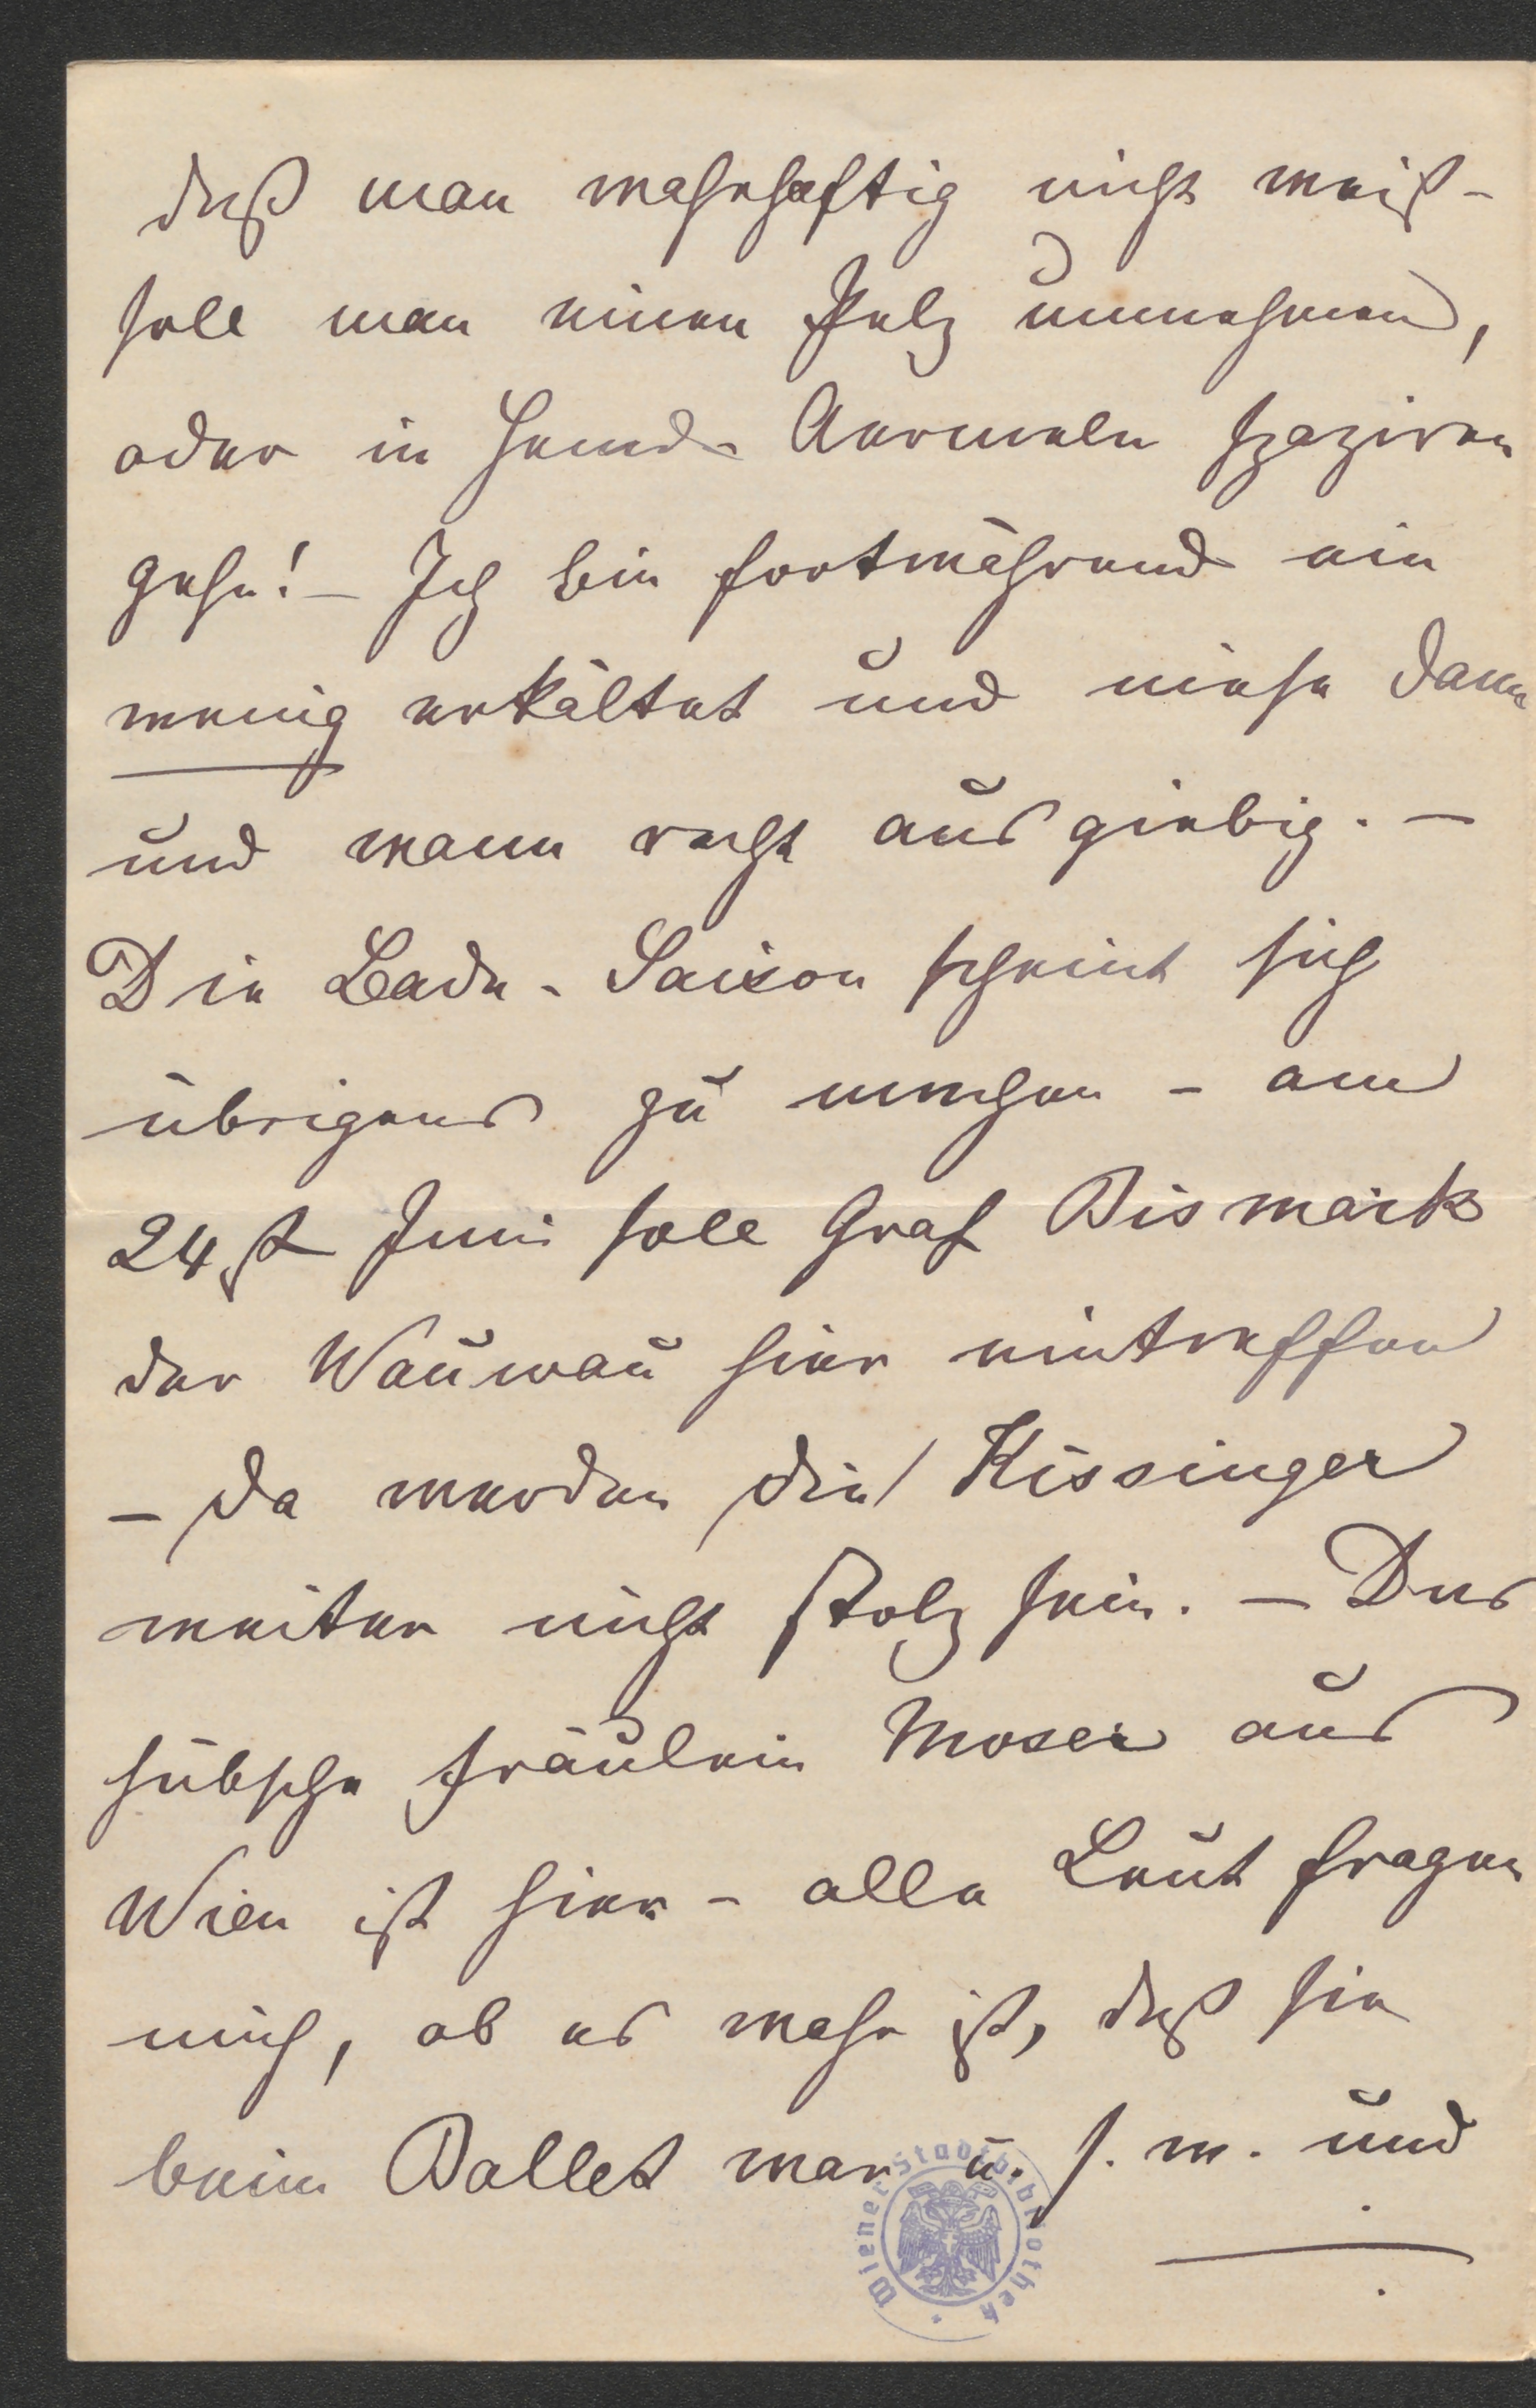 daß man wahrhaftig nicht weiß -
soll man einen Pelz umnehmen,
oder in Hemd-Aermeln spaziren
gehn! - Ich bin fortwährend ein
wenig erkältet und niese dann
und wann recht ausgiebig. -
Die Bade-Saison scheint sich
übrigens zu machen - am
24st Juni soll Graf Bismark
der Wauwau hier eintreffen
- da werden die Kissinger
weiter nicht stolz sein. - Das
hübsche Fräulein Moser aus
Wien ist hier - alle Leut fragen
mich, ob es wahr ist, daß sie
beim Ballet war u. s. w. und
Wiener Stadtbibliothek